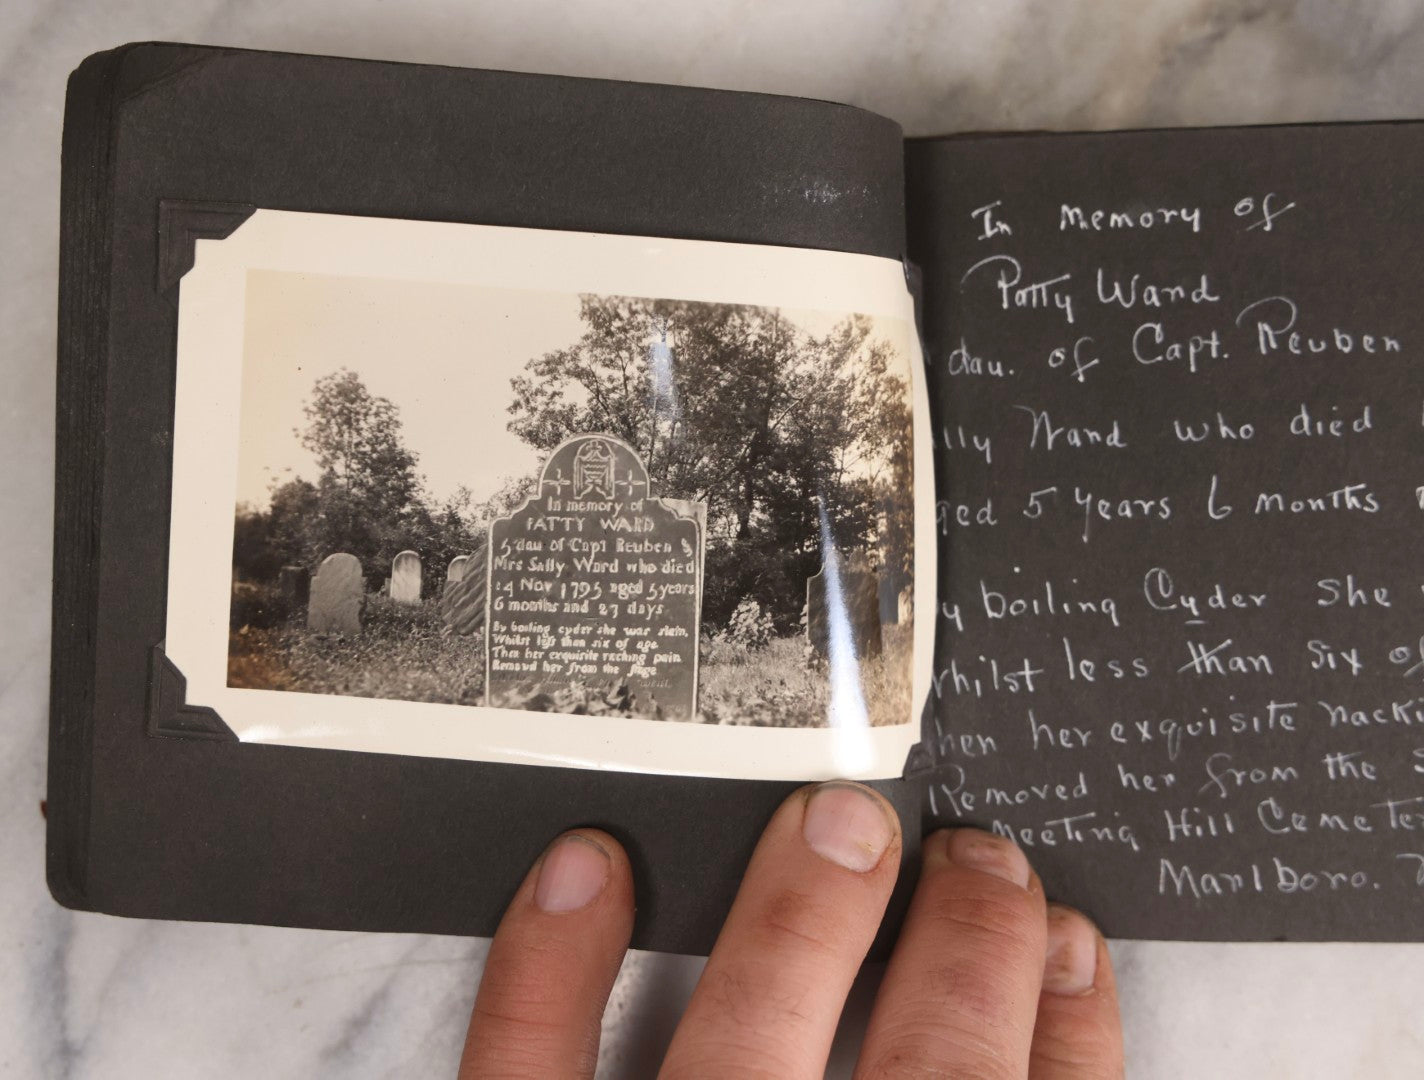 In memory of
PATTY WARD
dau of Capt Reuben &
Mrs Sally Ward who died
14 Nov 1795 aged 5 years
6 months and 27 days
By boiling cyder she was slain,
Whilst less than six of age
Then her exquisite racking pain
Removd her from the stage
In memory of
Patty Ward
dau. of Capt. Reuben
lly Ward who died
ged 5 years 6 months
y boiling Cyder She
whilst less than six of
hen her exquisite racki
Removed her from the S
Meeting Hill Cemeter
Marlboro.